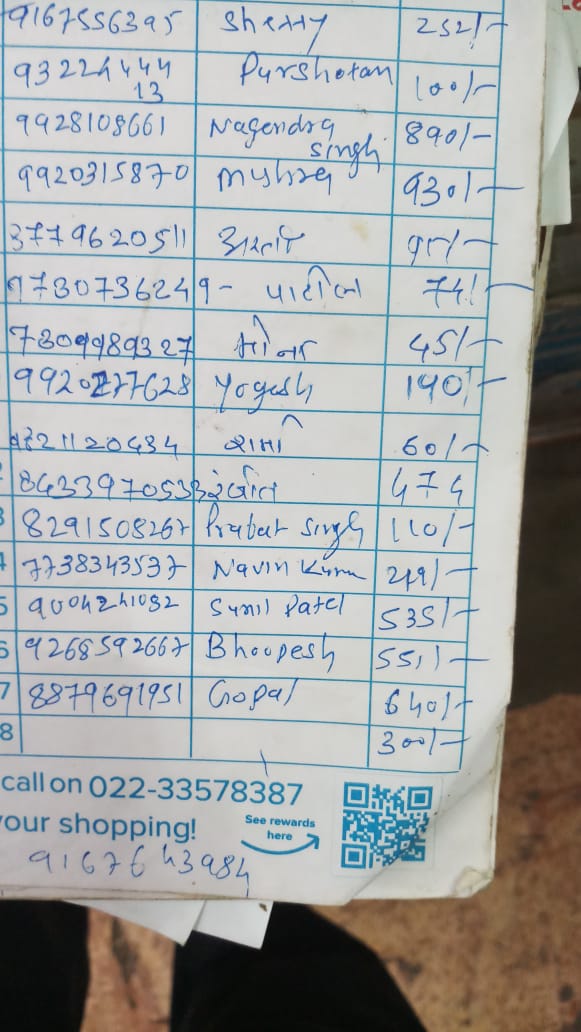 9167556395 Sherry 252/-
93224444 Purshotam 100/-
13
9928108661 Nagendra 890/-
singh
9920315870 930/-
3779620511
9730736249 - पाटील 74/-
7309989327 45/-
9920277628 Yogesh 190/-
60/-
8433970533 474
8291508267 Prabat Singh 110/-
7738343537 Navin Kumar
5 9004241082 Sunil Patel 535/-
6 9268592667 Bhoopesh 551/-
7 8879691951 Gopal 640/-
8 300/-
call on 022-33578387
your shopping!
See rewards
here
9167643984